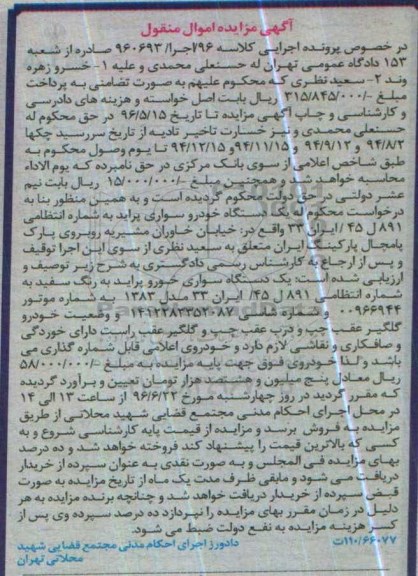 آگهی مزایده اموال منقول
در خصوص پرونده اجرایی کلاسه ۲۹۶اجرا/ ۹۶۰۶۹۳ صادره از شعبه
۱۵۳ دادگاه عمومی تهران له حسنعلی محمدی و علیه ۱- خسرو زهره
وند ۲- سعید نظری که محکوم علیهم به صورت تضامنی به پرداخت
مبلغ -/۳۱۵/۸۴۵/۰۰۰ ریال بابت اصل خواسته و هزینه های دادرسی
و کارشناسی و چاپ آگهی مزایده تا تاریخ ۹۶/۵/۱۵ در حق محکوم له
حسنعلی محمدی و نیز خسارت تاخیر تادیه از تاریخ سررسید چکها
۹۴/۸/۲ و ۹۴/۹/۱۲ و ۹۴/۱۱/۱۵ و ۹۴/۱۲/۱۵ تا یوم وصول محکوم به
طبق شاخص اعلامی از سوی بانک مرکزی در حق نامبرده که یوم الاداء
محاسبه خواهد شد و همچنین مبلغ -/۱۵/۰۰۰/۰۰۰ ریال بابت نیم
عشر دولتی در حق دولت محکوم گردیده است و به همین منظور بنا به
درخواست محکوم له یک دستگاه خودرو سواری پراید به شماره انتظامی
۸۹۱ ل ۴۵ /ایران ۳۳ واقع در: خیابان خاوران مشیریه روبروی پارک
پامچال پارکینگ ایران متعلق به سعید نظری از سوی این اجرا توقیف
و پس از ارجاع به کارشناس رسمی دادگستری به شرح زیر توصیف و
ارزیابی شده است: یک دستگاه سواری خودرو پراید به رنگ سفید به
شماره انتظامی ۸۹۱ ل ۴۵/ ایران ۳۳ مدل ۱۳۸۳ به شماره موتور
۰۰۹۶۶۹۴۴ و شماره شاسی ۱۴۱۲۲۸۳۳۵۲۰۸۷ و وضعیت خودرو
گلگیر عقب چپ و درب عقب چپ و گلگیر عقب راست دارای خوردگی
و صافکاری و نقاشی لازم دارد و خودروی اعلانی قابل شماره گذاری می
باشد و لذا خودروی فوق جهت پایه مزایده به مبلغ -/۵۸/۰۰۰/۰۰۰
ریال معادل پنج میلیون و هشتصد هزار تومان تعیین و برآورد گردیده
که مقرر گردید در روز چهارشنبه مورخ ۹۶/۶/۲۲ از ساعت ۱۳ الی ۱۴
در محل اجرای احکام مدنی مجتمع قضایی شهید محلاتی از طریق
مزایده به فروش برسد و مزایده از قیمت پایه کارشناسی شروع و به
کسی که بالاترین قیمت را پیشنهاد کند فروخته خواهد شد و ده درصد
بهای مزایده فی المجلس و به صورت نقدی به عنوان سپرده از خریدار
دریافت می شود و مابقی ظرف مدت یک ماه از تاریخ مزایده به صورت
قبض سپرده از خریدار دریافت خواهد شد و چنانچه برنده مزایده به هر
دلیل در زمان مقرر بهای مزایده را نپردازد ده درصد سپرده وی پس از
کسر هزینه مزایده به نفع دولت ضبط می شود.
۱۱۰/۶۶۰۷۷ت
دادورز اجرای احکام مدنی مجتمع قضایی شهید
محلاتی تهران